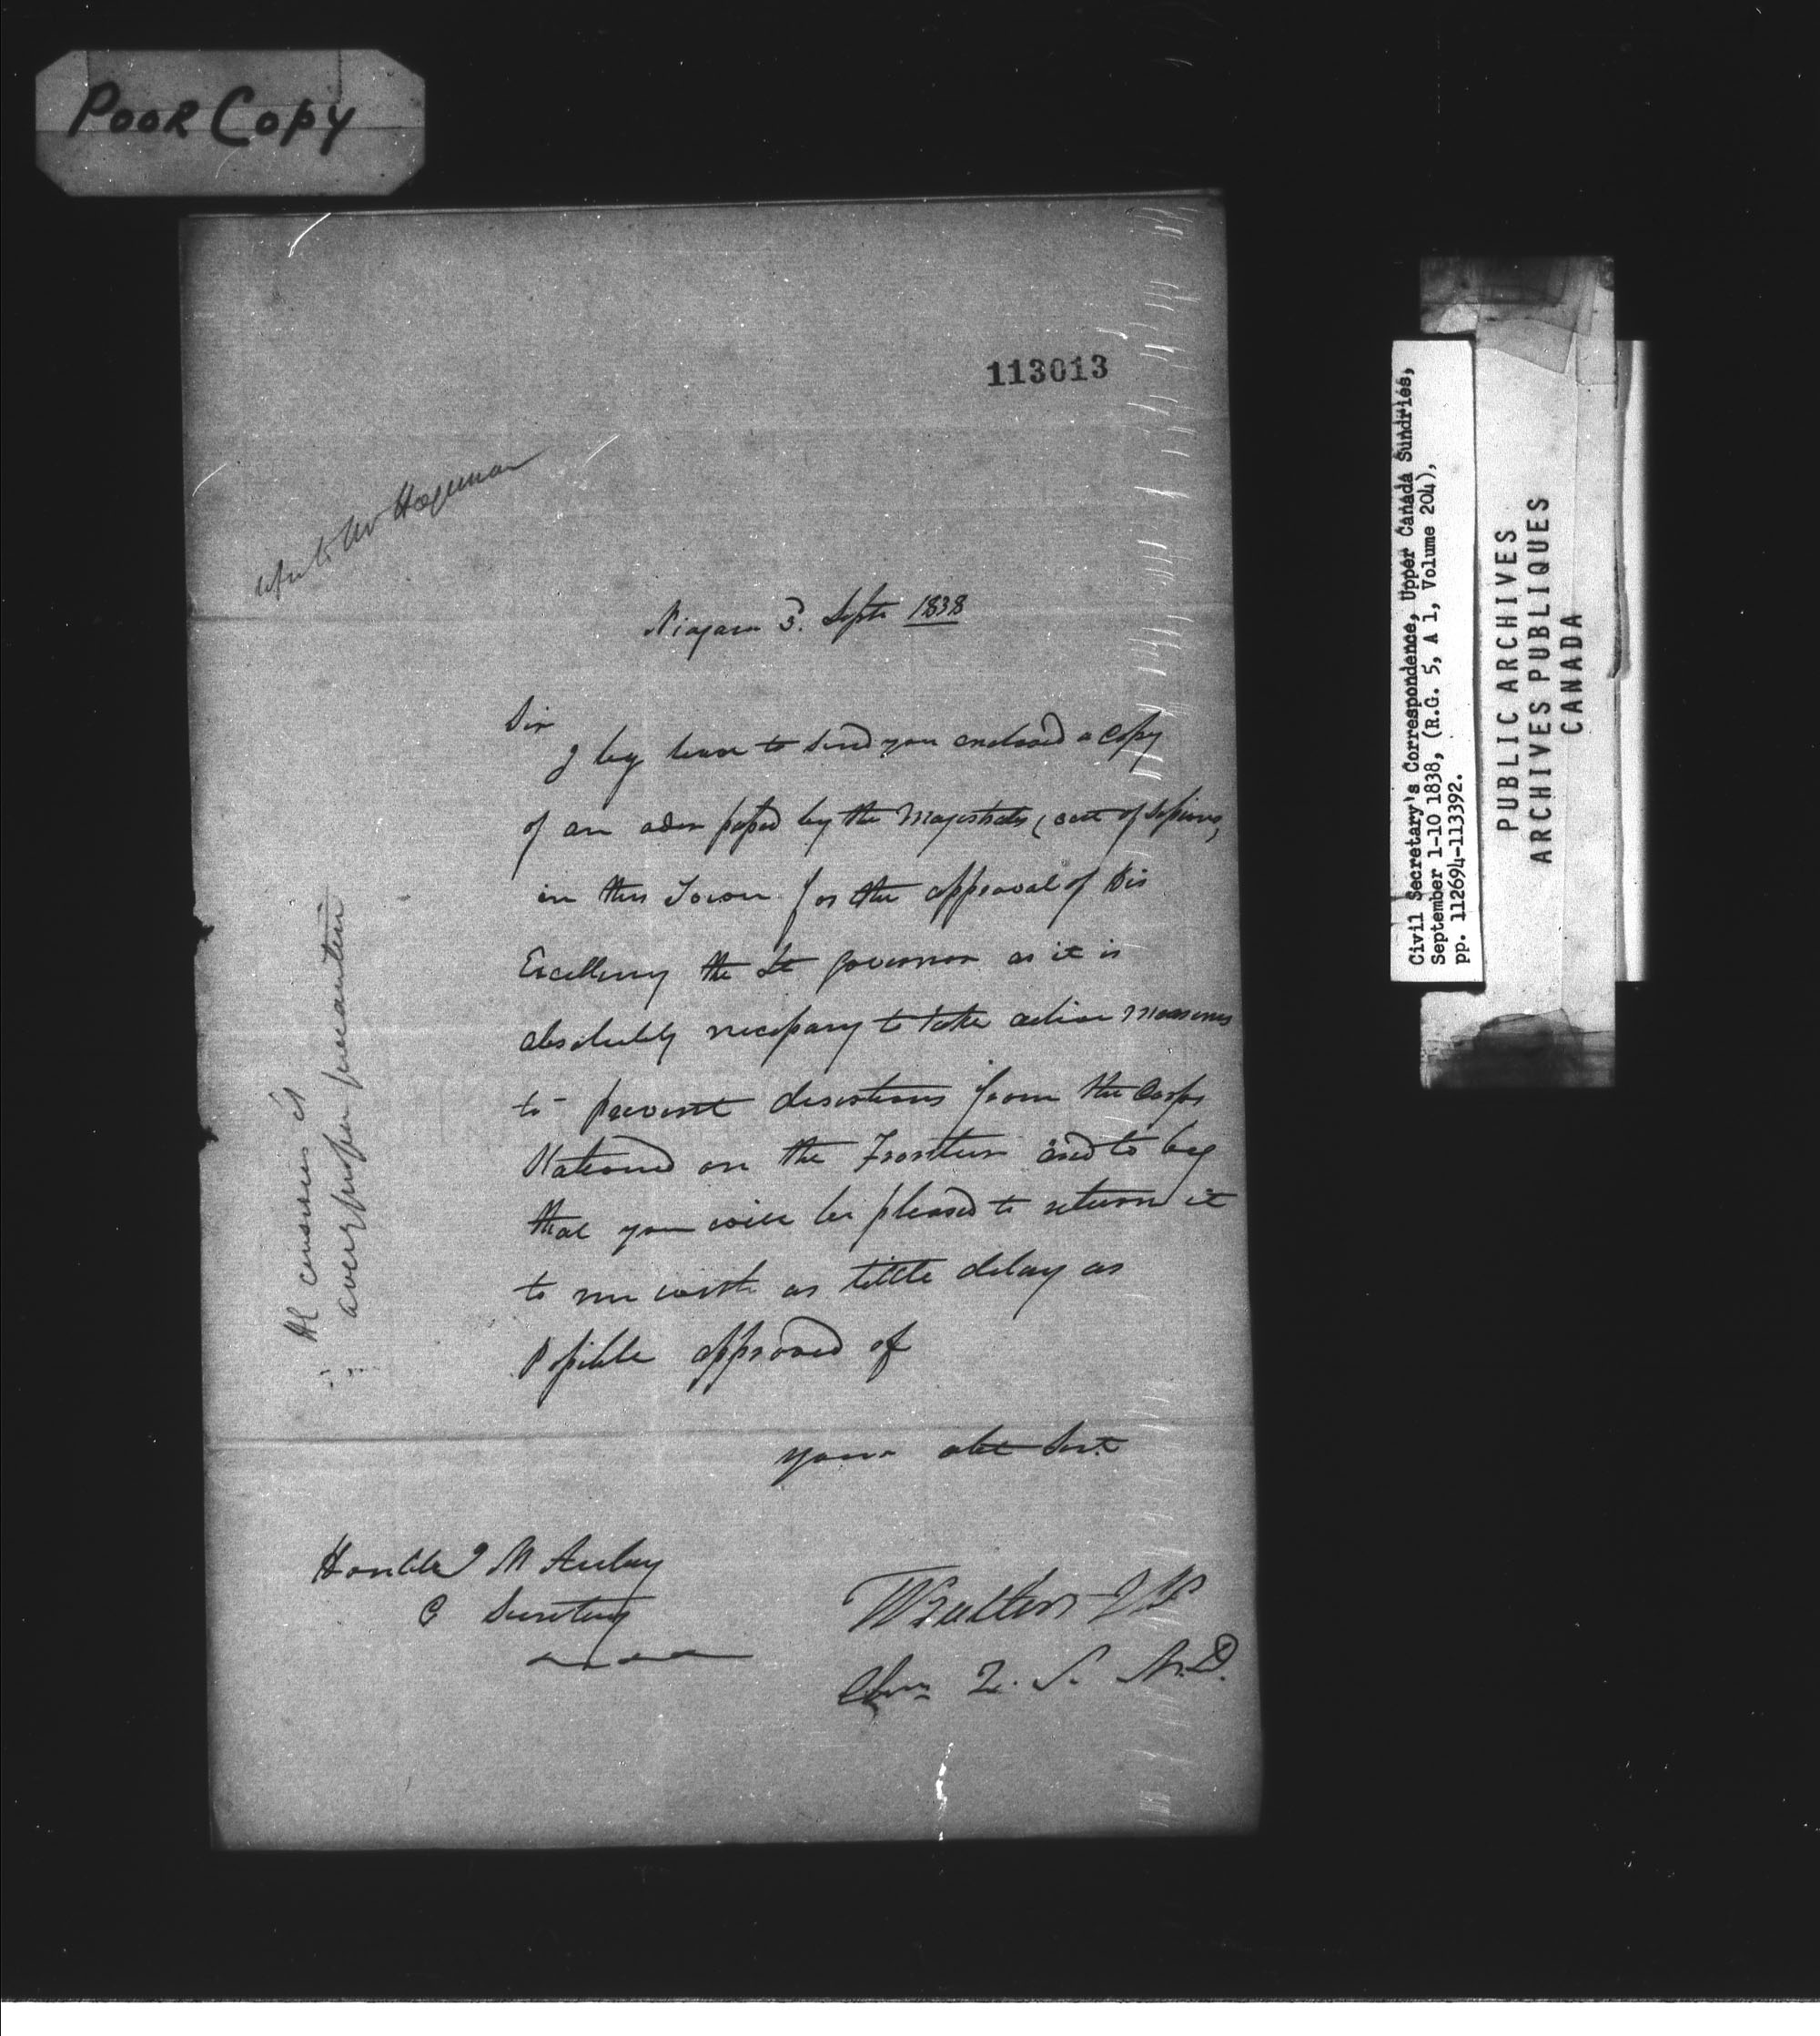 Poor Copy
113013
Mr Hagerman
Niagara 3. Septr 1838
Sir
I beg leave to send you enclosed a Copy
of an order passed by the Magistrates (
in this Town for the approval of His
Excellency the Lt Governor as it is
absolutely necessary to take active measures
to prevent desertions from the Corps
Stationed on the Frontier and to beg
that you will be pleased to return it
to me with as little delay as
Possible approved of
your obt Sert
Honble J McAulay
C Secretary
J P
Chm Q. S. N. D.
He conceives it
a very proper precaution
Civil Secretary's Correspondence, Upper Canada Sundries,
September 1-10 1838, (R.G. 5, A 1, Volume 204),
pp. 112694-113392.
PUBLIC ARCHIVES
ARCHIVES PUBLIQUES
CANADA